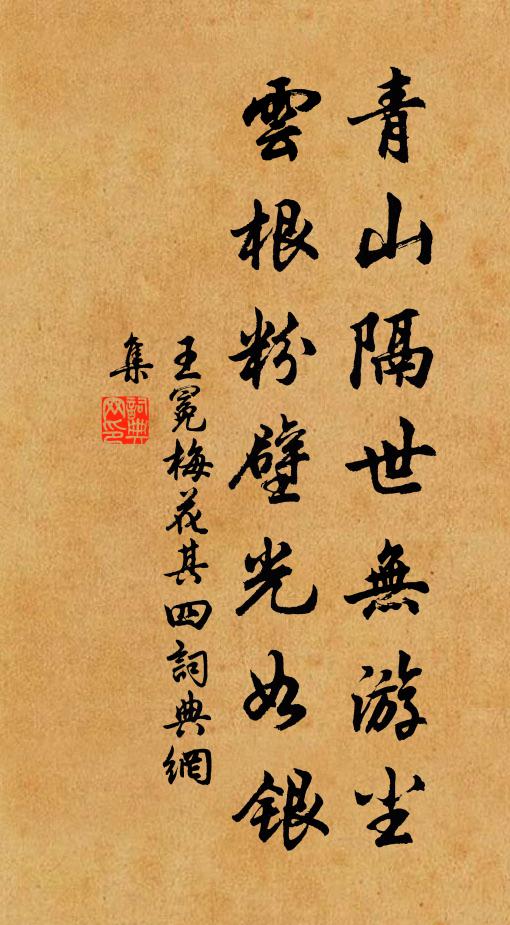 青山隔世無游尘
雲根粉壁光如銀
王冕梅花其四詞典網
集
詞典
网印